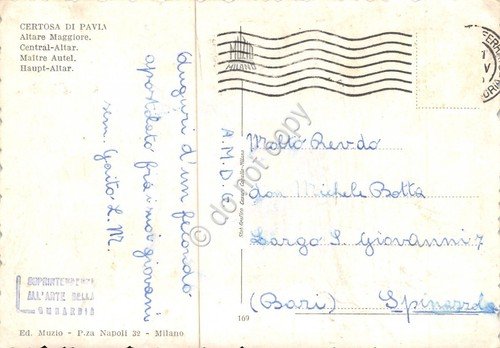 CERTOSA DI PAVIA
Altare Maggiore.
Central-Altar.
Maître Autel.
Haupt-Altar.
Auguri d'un fecondo
apostolato fra i suoi giovani
sem. Gaito L. M.
A. M. D. G.
MUZIO
MILANO
Molto Rev.do
don Michele Botta
Largo S. Giovanni 7
(Bari) Spinazzola
do not copy
SOPRINTENDENZA
ALL'ARTE DELLA
LOMBARDIA
169
Ed. Muzio - P.za Napoli 32 - Milano